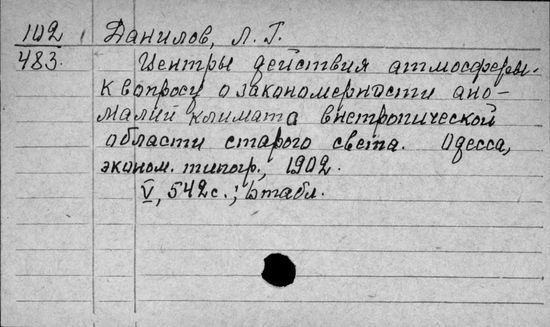 102 Данилов, Л. Г.
483. Центры действия атмосферы.
К вопросу о закономерности ано-
малий климата внетропической
области старого света. Одесса,
эконом. типогр., 1902.
V, 542 с.; табл.